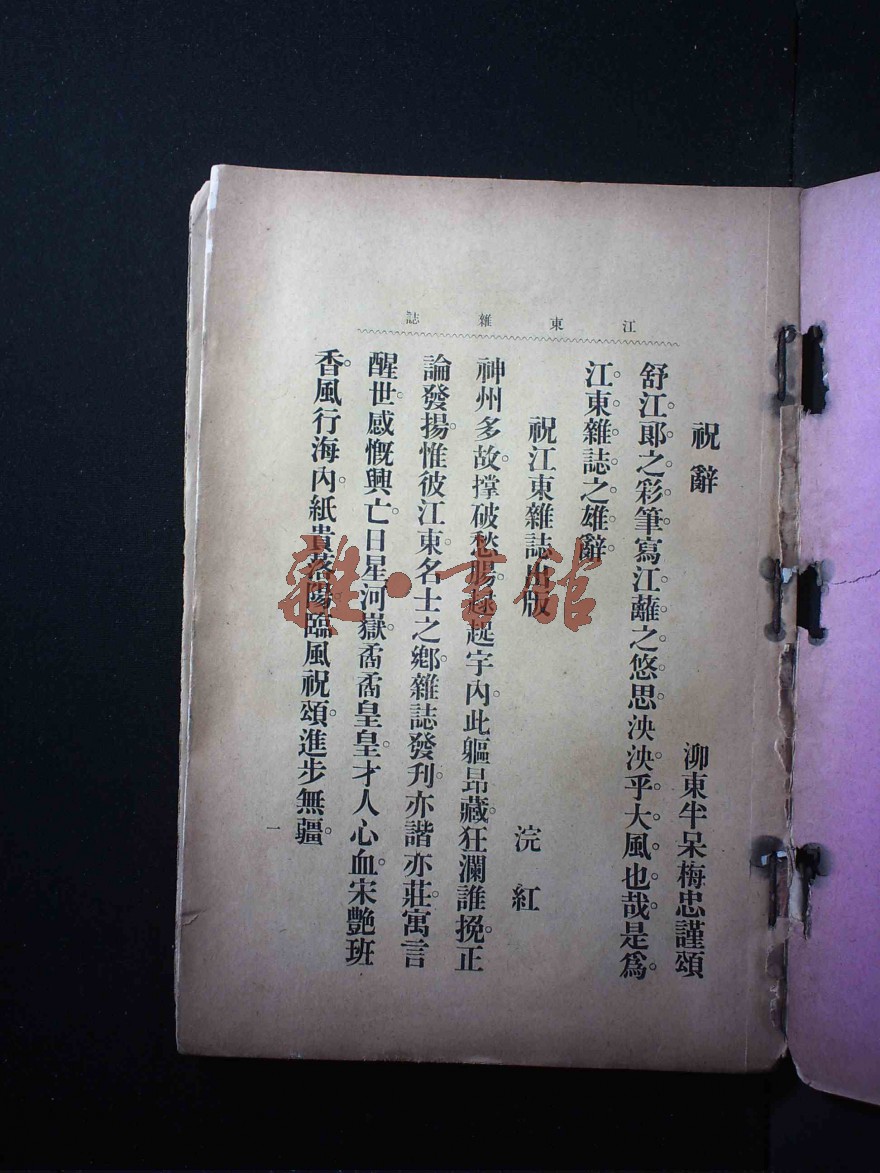 江東雜誌
祝辭
泖東半呆梅忠謹頌
舒江郎之彩筆。寫江蘺之悠思。泱泱乎大風也哉。是爲。
江東雜誌之雄辭。
祝江東雜誌出版
浣紅
神州多故。撐破愁腸。起宇內。此軀昂藏。狂瀾誰挽。正
論發揚。惟彼江東。名士之鄉。雜誌發刋。亦諧亦莊。寓言
醒世。感慨興亡。日星河嶽。矞矞皇皇。才人心血。宋艷班
香。風行海內。紙貴落陽。臨風祝頌。進步無疆。
一
雜·書館